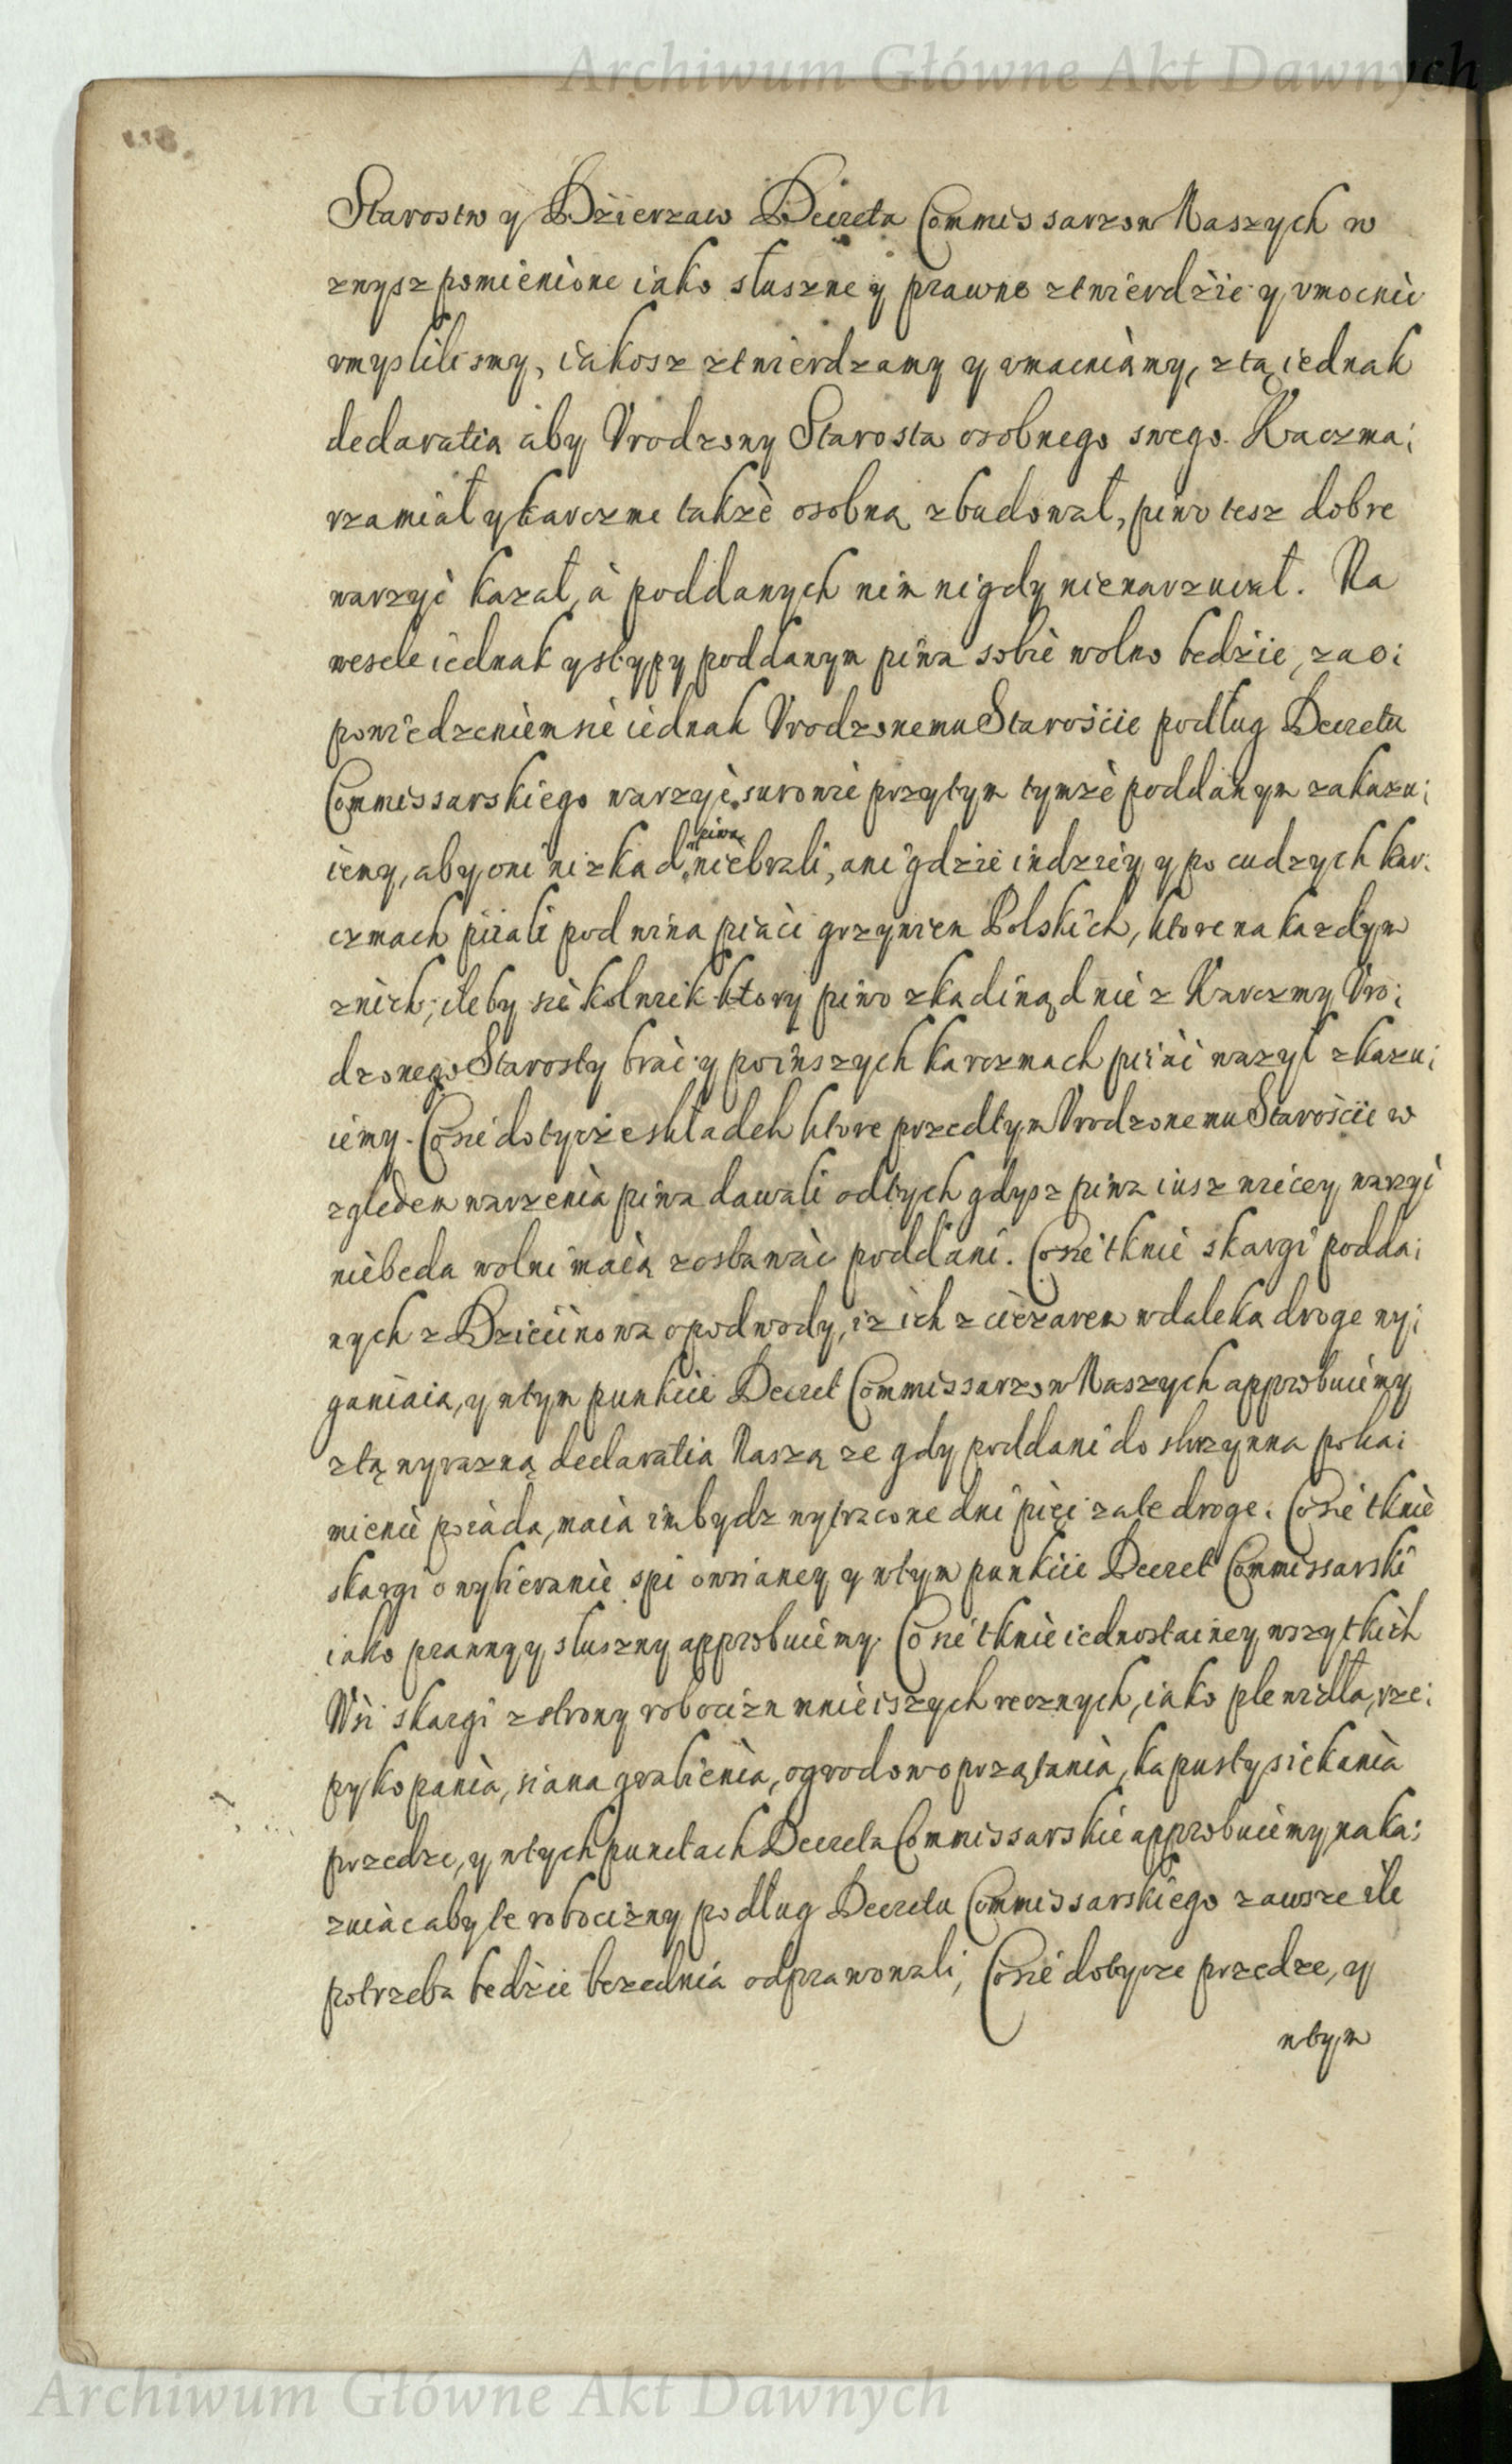 Archiwum Główne Akt Dawnych
Starostw y Dźierzaw Decreta Commissarzow Naszych w
zwysz pomienione iako słuszne y prawne ztwierdźić y vmocnić
vmyslilismy, iakosz ztwierdzamy y vmacniamy, z tą iednak
declaratia aby Vrodzony Starosta osobnego swego Kaczma:
rza miał y karczme takze osobną zbudował, piwo tesz dobre
warzyć kazał, à poddanych nim nigdy nienarzucał. Na
wesele iednak y stypy poddanym piwa sobie wolno bedzie, za o:
powiedzeniem sie iednak Vrodzonemu Starośćie podług Decretu
Commissarskiego warzyć. surowie przytym tymże poddanym zakazu:
iemy, aby oni nizkad piwa niebrali, ani gdzie indziey y po cudzych kar:
czmach piiali pod wina piąći grzywien Polskich, ktore na kazdym
znich, ileby sie kolwiek ktory piwo zkadinąd nie z Karczmy Vro:
dzonego Starosty brać y po inszych karczmach piiać wazył zkazu:
iemy. Co sie dotycze składek ktore przedtym Vrodzonemu Starośćie w
zgledem warzenia piwa dawali od tych gdysz piwa iusz wiecey warzyć
niebeda wolni maią zostawać poddani. Co sie tknie skargi podda:
nych z Dziećinowa o podwody, iz ich z ćięzarem w daleka droge wy:
ganiaia, y wtym punkćie Decret Commissarzow Naszych approbuiemy
z tą wyrazną declaratia Naszą ze gdy poddani do skrzynna po ka:
mienie poiada, maia im bydz wytracone dni pięć za te droge. Co sie tknie
skargi o wybieranie spi owsianey y wtym punkćie Decret Commissarski
iako prawny y słuszny approbuiemy. Co sie tknie iednostainey wszytkich
Wsi skargi z strony roboćizn mnieiszych recznych, iako plewidła, rze:
py kopania, siana grabienia, ogrodow oprzątania, kapusty siekania
przedze, y wtych punctach Decreta Commissarskie approbuiemy, naka:
zuiąc aby te robocizny podług Decretu Commissarskiego zawsze ile
potrzeba bedźie bezednia odprawowali, Co sie dotycze przedze, y
wtym
Archiwum Główne Akt Dawnych